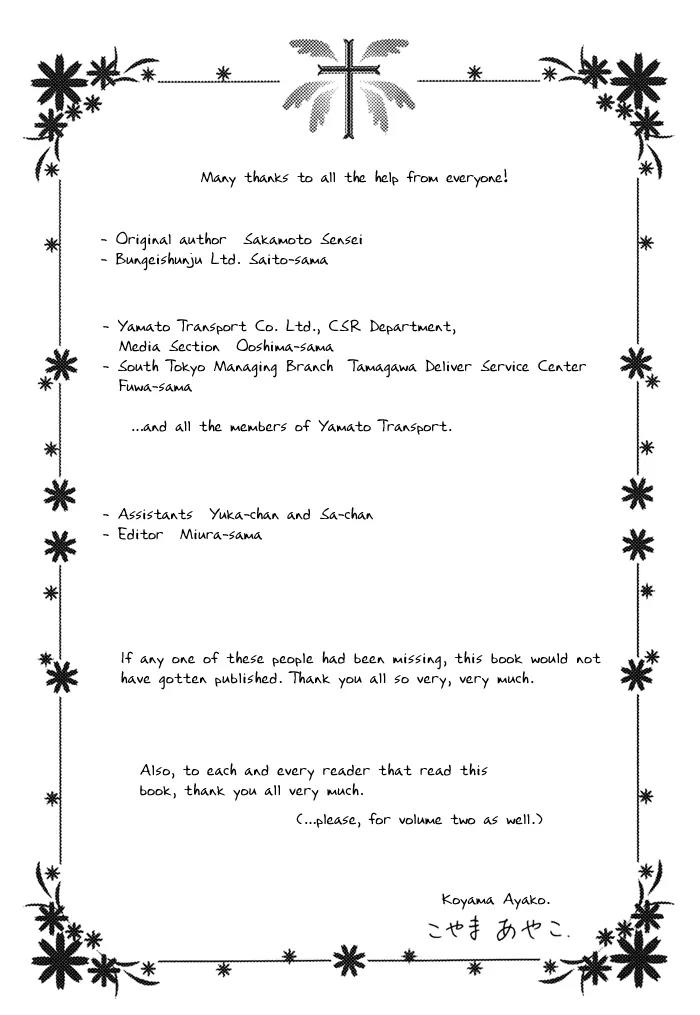 Many thanks to all the help from everyone!
- Original author Sakamoto Sensei
- Bungeishunju Ltd. Saito-sama
- Yamato Transport Co. Ltd., CSR Department,
Media Section Ooshima-sama
- South Tokyo Managing Branch Tamagawa Deliver Service Center
Fuwa-sama
...and all the members of Yamato Transport.
- Assistants Yuka-chan and Sa-chan
- Editor Miura-sama
If any one of these people had been missing, this book would not
have gotten published. Thank you all so very, very much.
Also, to each and every reader that read this
book, thank you all very much.
(...please, for volume two as well.)
Koyama Ayako.
こやま あやこ.